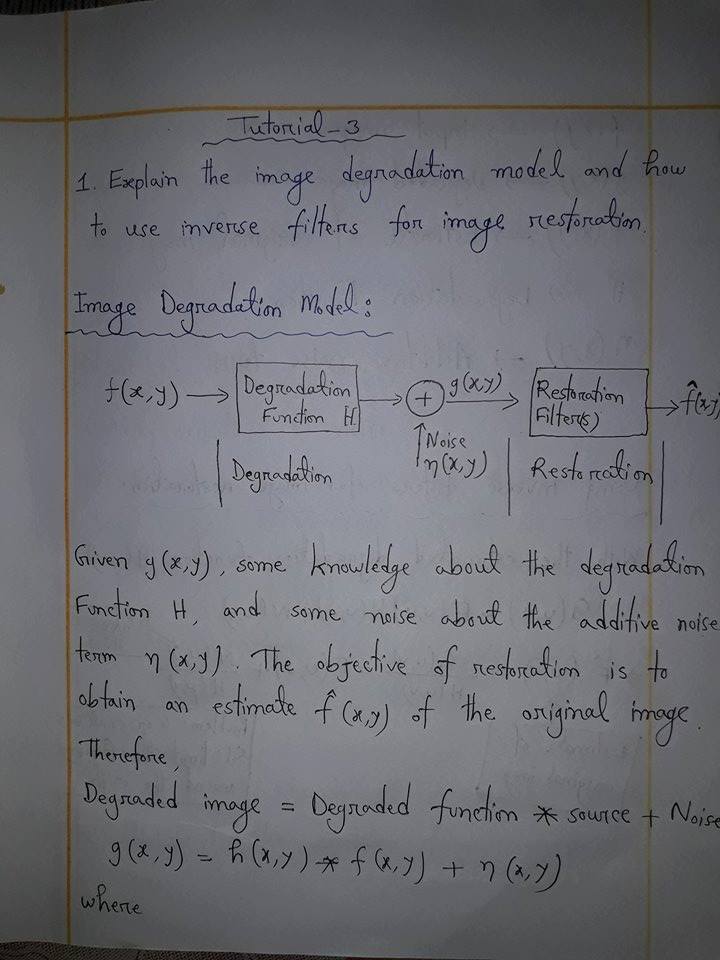 Tutorial-3
1. Explain the image degradation model and how
to use inverse filters for image restoration.
Image Degradation Model:
f(x,y) → Degradation Function H → + g(x,y) → Restoration Filter(s) → f̂(x,y)
↑ Noise η(x,y)
| Degradation | Restoration |
Given g(x,y), some knowledge about the degradation
Function H, and some noise about the additive noise
term η(x,y). The objective of restoration is to
obtain an estimate f̂(x,y) of the original image.
Therefore,
Degraded image = Degraded function * source + Noise
g(x,y) = h(x,y) * f(x,y) + η(x,y)
where